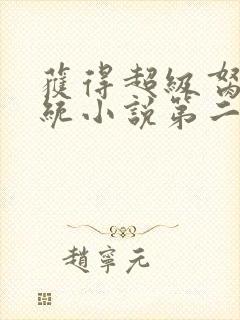 獲得超級
統小說第二
趙寧元